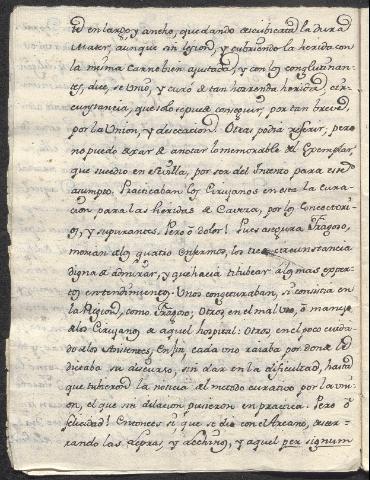 ted en largo, y ancho, quedando descubierta la dura
Mater, aunque sin lesion, y cubriendo la herida con
la misma Carne bien ajustada, y con los conglutinan-
tes, que, se Unió, y curó de tan horrenda herida, cir-
cunstancia, que solo se puede conseguir, por tan breve
por la Union, y desecacion. Otras podia referir, pero
no puedo dexar de anotar lo memorable del Exemplar,
que sucedio en Sevilla, por ser del Intento para este
asumpto. Practicaban los Cirujanos en esta la cura-
cion para las heridas de Caveza, por los Concoctori-
os, y supurantes. Pero ó dolor! Pues asegura Fragoso,
morian de los quatro enfermos, los tres circunstancia
digna de admirar, y que hacia titubear algunas exper-
tos entendimientos. Unos congeturaban, si consistia en
la Region, como Fragoso; Otros en el mal uso, ó manejo
de los Cirujanos de aquel hospital: Otros en el poco cuida-
do de los Asistentes; En fin, cada uno raiaba por donde le
dictaba su discurso, sin dar en la dificultad, hasta
que tubieron la noticia del metodo curativo por la uni-
on, el que sin dilacion pusieron en practica. Pero ó
felicidad! Entonces si que se dió con el Arcano, cesar-
rando las depras, y deching, y aquel per signum